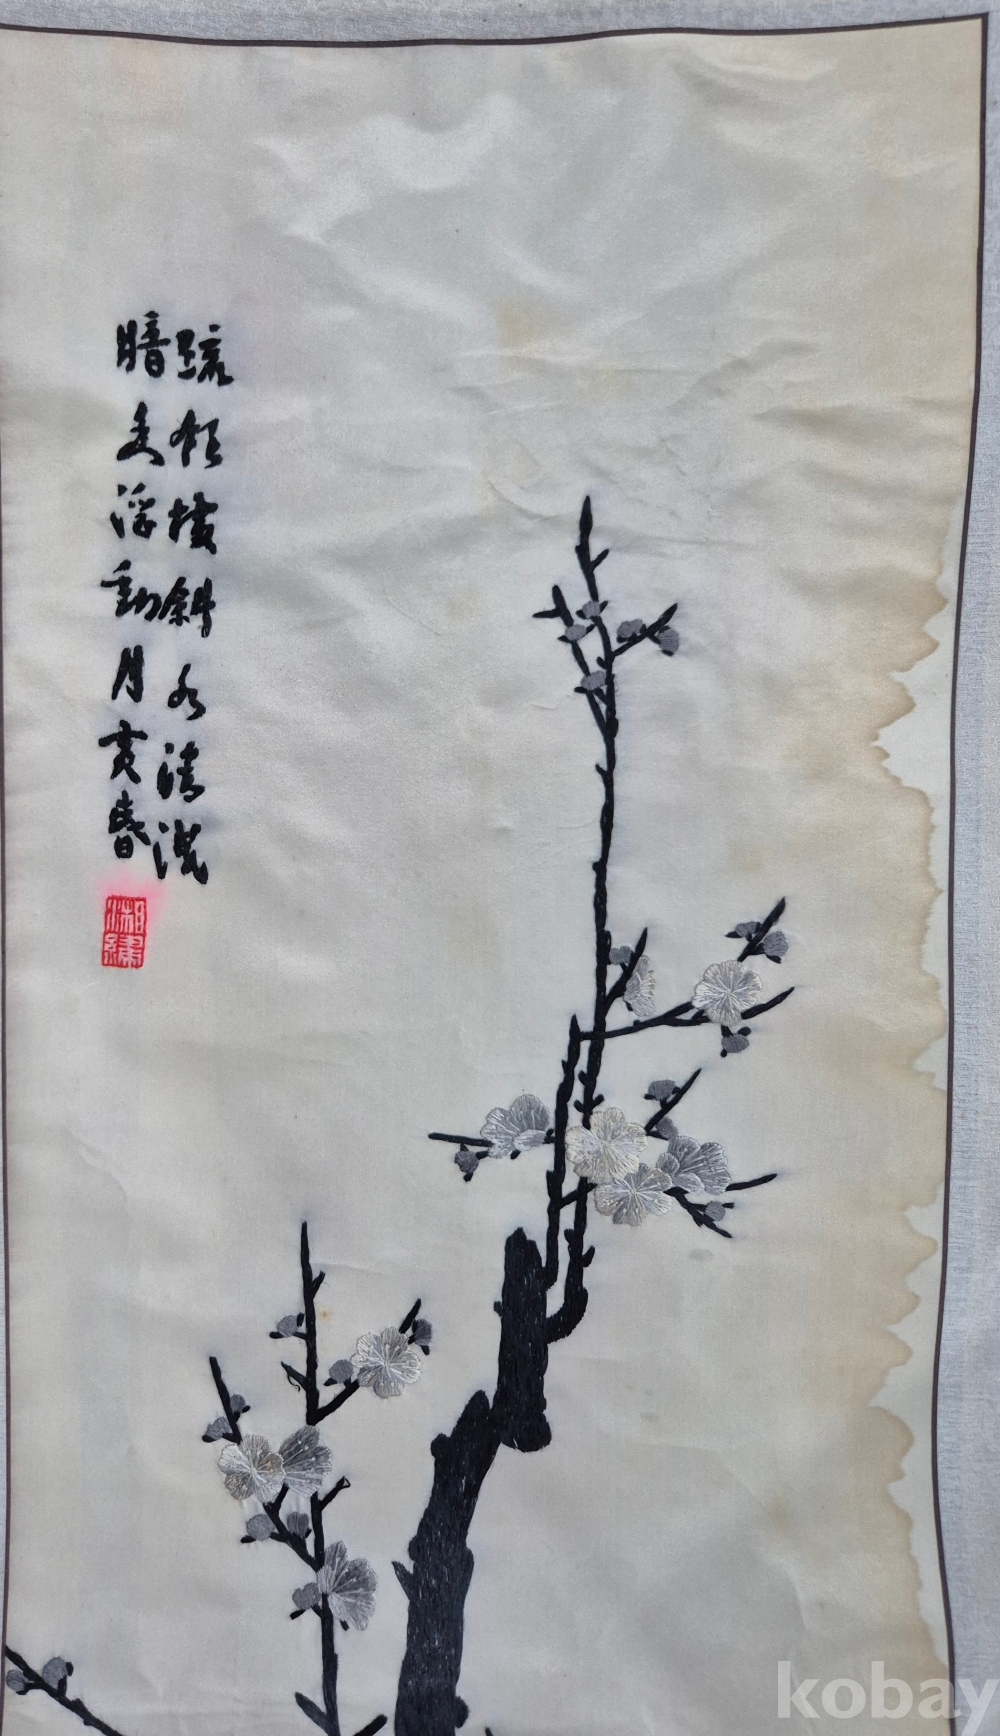 疏影横斜水清浅
暗香浮動月黄昏
湘繡
kobay